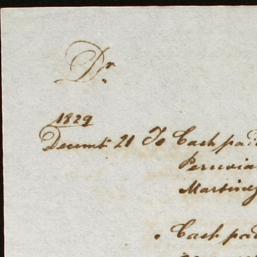 Dr.
1829
Decemb. 21 To Cash paid
Peruvia
Martiney
. Cash paid